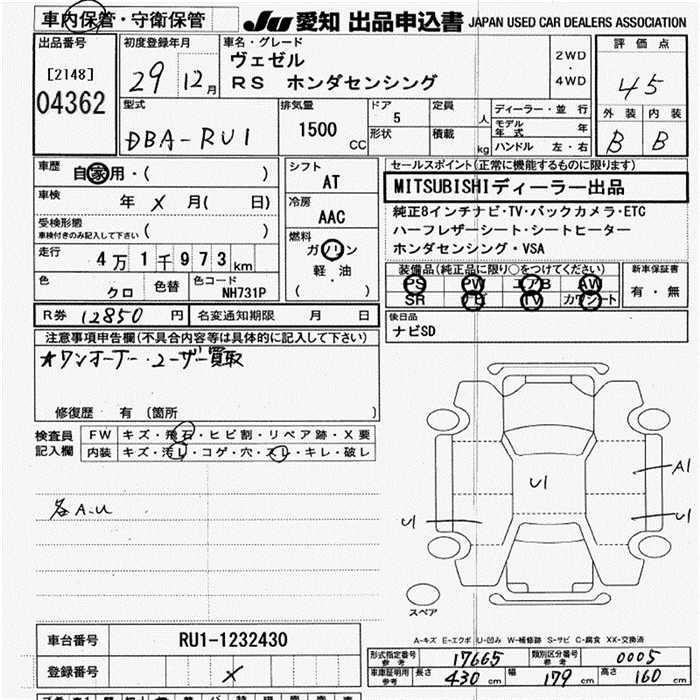 車内保管・守衛保管
JU 愛知 出品申込書 JAPAN USED CAR DEALERS ASSOCIATION
出品番号
[2148]
04362
初度登録年月
29 12月
車名・グレード
ヴェゼル
RS ホンダセンシング
2WD
・
4WD
評価点
4.5
外装 内装
B B
型式
DBA-RU1
排気量
1500
CC
ドア
5
形状
定員
人
積載
kg
ディーラー・並行
モデル年式 年
ハンドル 左・右
車歴
自家用・( )
車検
年 × 月( 日)
受検形態
車検付きのみ記入して下さい ( )
走行
4万1千973km
色
クロ
色替
色コード
NH731P
シフト
AT
冷房
AAC
燃料
ガソリン
軽・油
( )
セールスポイント(正常に機能するものに限ります)
MITSUBISHIディーラー出品
純正8インチナビ・TV・バックカメラ・ETC
ハーフレザーシート・シートヒーター
ホンダセンシング・VSA
装備品(純正品に限り○をつけてください)
PS PW エアB AW
SR ナビ TV カワシート
新車保証書
有・無
後日品
ナビSD
R券 12850 円
名変通知期限 月 日
注意事項申告欄(不具合内容等は具体的に記入して下さい)
★ワンオーナー・ユーザー買取
修復歴 有 (箇所 )
検査員記入欄
FW キズ・飛石・ヒビ割・リペア跡・X要
内装 キズ・汚レ・コゲ・穴・スレ・キレ・破レ
各A.U
U1
A1
U1
U1
スペア
A-キズ E-エクボ U-凹み W-補修跡 S-サビ C-腐食 XX-交換済
車台番号
RU1-1232430
登録番号
×
形式指定番号
参考
17665
類別区分番号
参考
0005
車庫証明用
参考
長さ 430 cm
幅 179 cm
高さ 160 cm